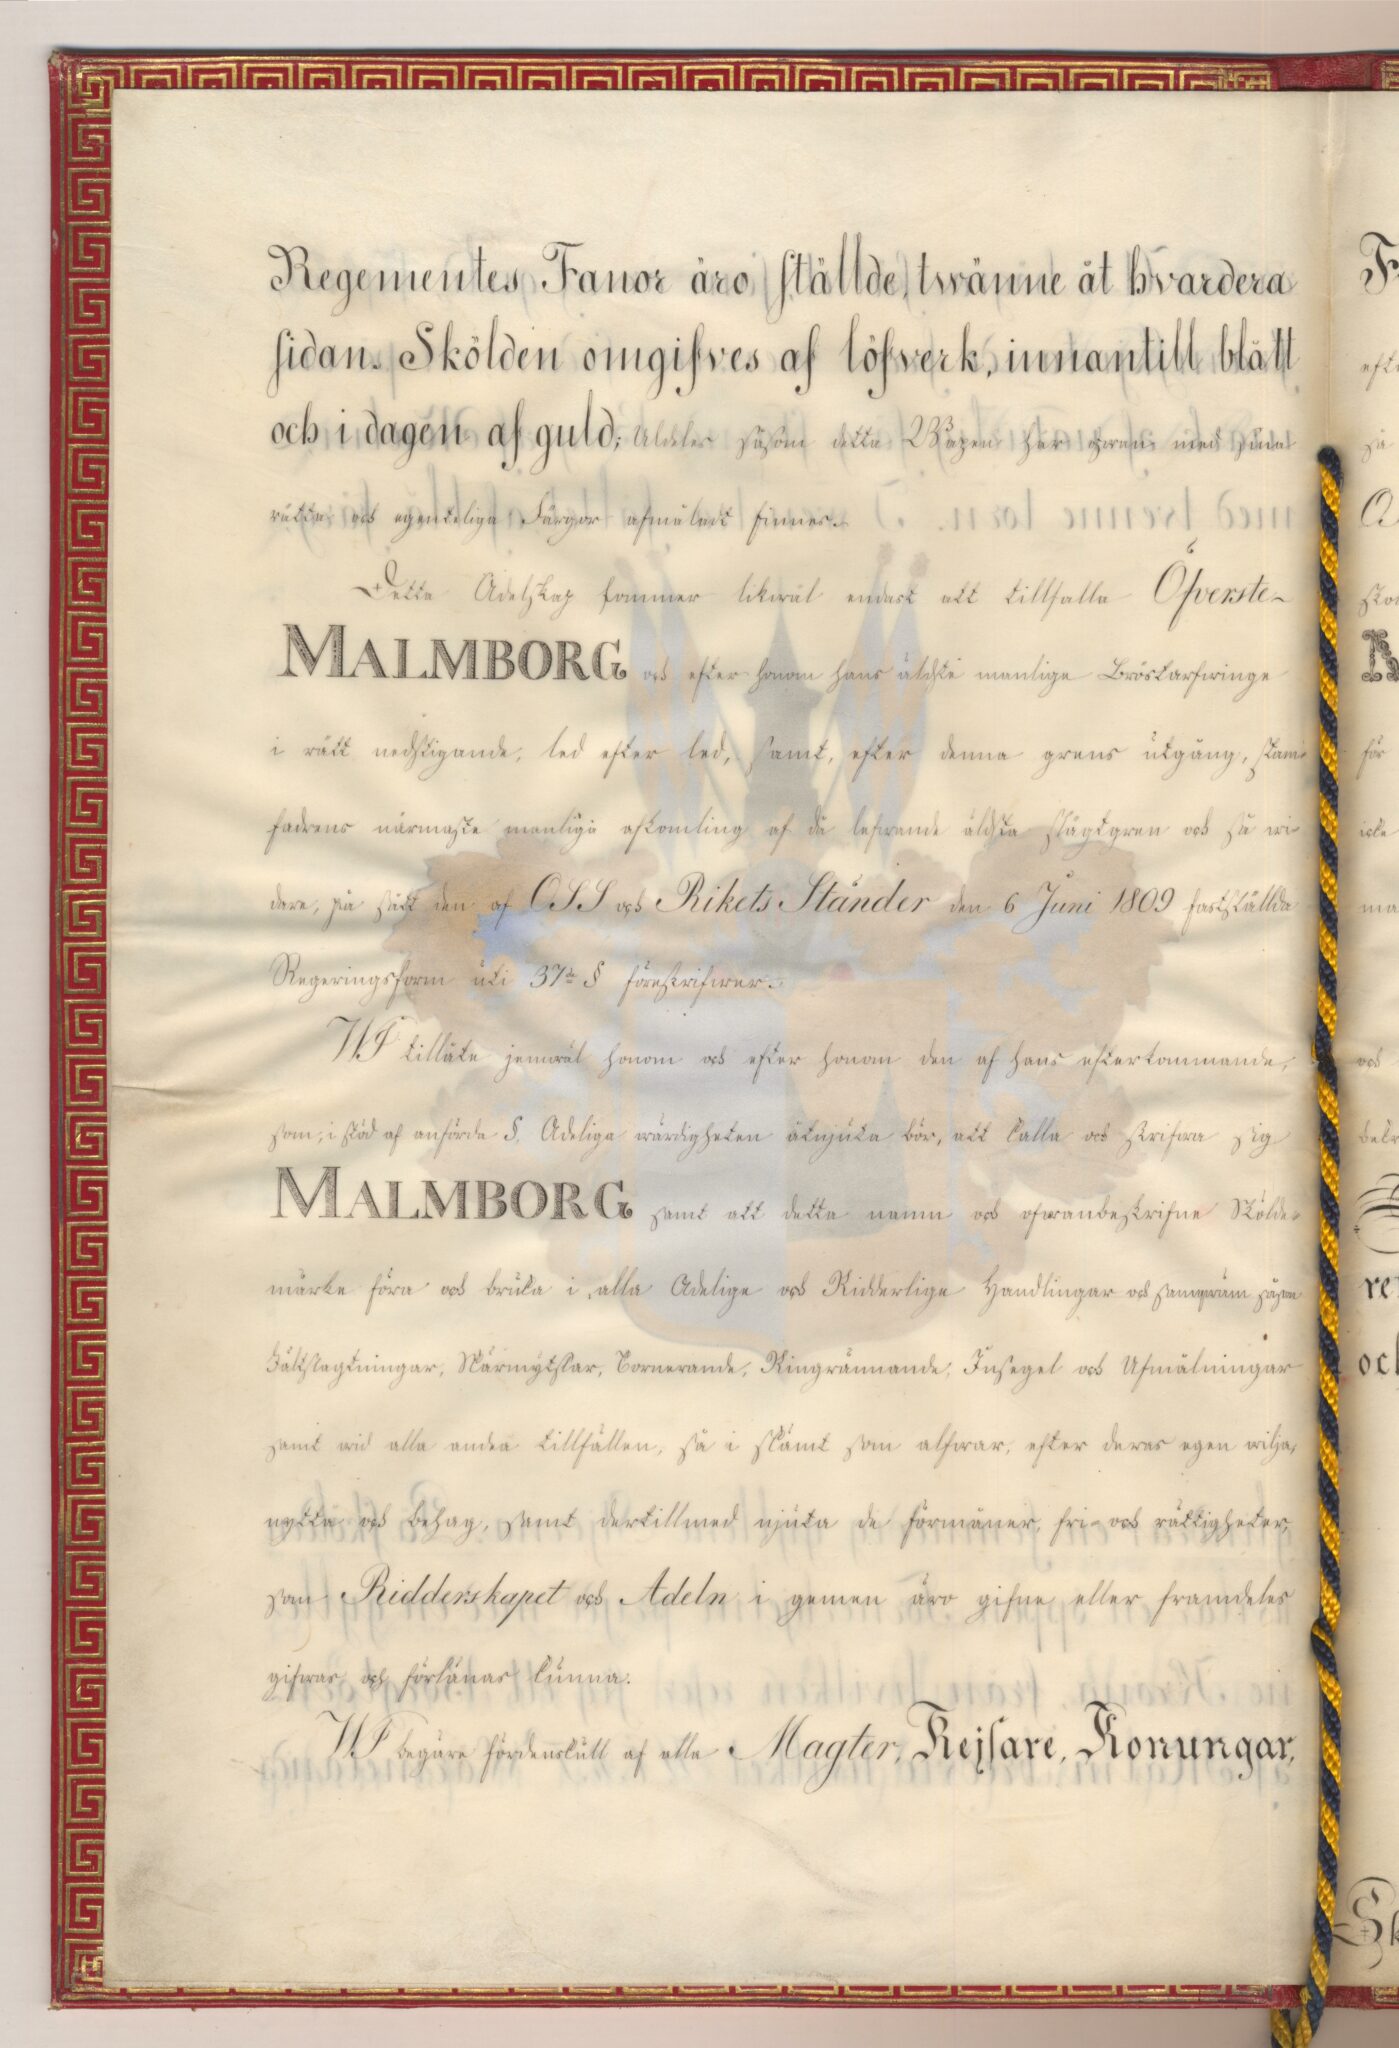 Regementes Fanor äro ställde, tvänne åt hvardera
sidan. Skölden omgifves af löfverk, innantill blått
och i dagen af guld; Aldeles såsom detta Wapen här ofwan med sina
rätta och egenteliga Färgor afmåladt finnes.
Detta Adelskap kommer likwäl endast att tillfalla Öfverste-
MALMBORG och efter honom hans äldste manlige Bröstarfwinge
i rätt nedstigande, led efter led, samt, efter denna grens utgång, stam-
fadrens närmaste manliga afkomling af då lefwande äldsta slägtgren och så wi-
dare, på sätt den af OSS och Rikets Ständer den 6 Juni 1809 fastställda
Regeringsform uti 37de § föreskrifwer.
WI tillåte jemwäl honom och efter honom den af hans efterkommande,
som, i stöd af anförda §, Adeliga wärdigheten åtnjuta bör, att kalla och skrifwa sig
MALMBORG samt att detta namn och ofwanbeskrifne Skölde-
märke föra och bruka i alla Adelige och Ridderlige Handlingar och såsom
Fältslagtningar, Skärmytslar, Tornerande, Ringrännande, Insegel och Afmålningar
samt wid alla andra tillfällen, så i skämt som alfwar, efter deras egen wilja,
nytta och behag, samt dertillmed njuta de förmåner, fri- och rättigheter,
som Ridderskapet och Adeln i gemen äro gifne eller framdeles
gifwas och förlänas kunna.
WI begäre fördenskull af alla Magter, Kejsare, Konungar,